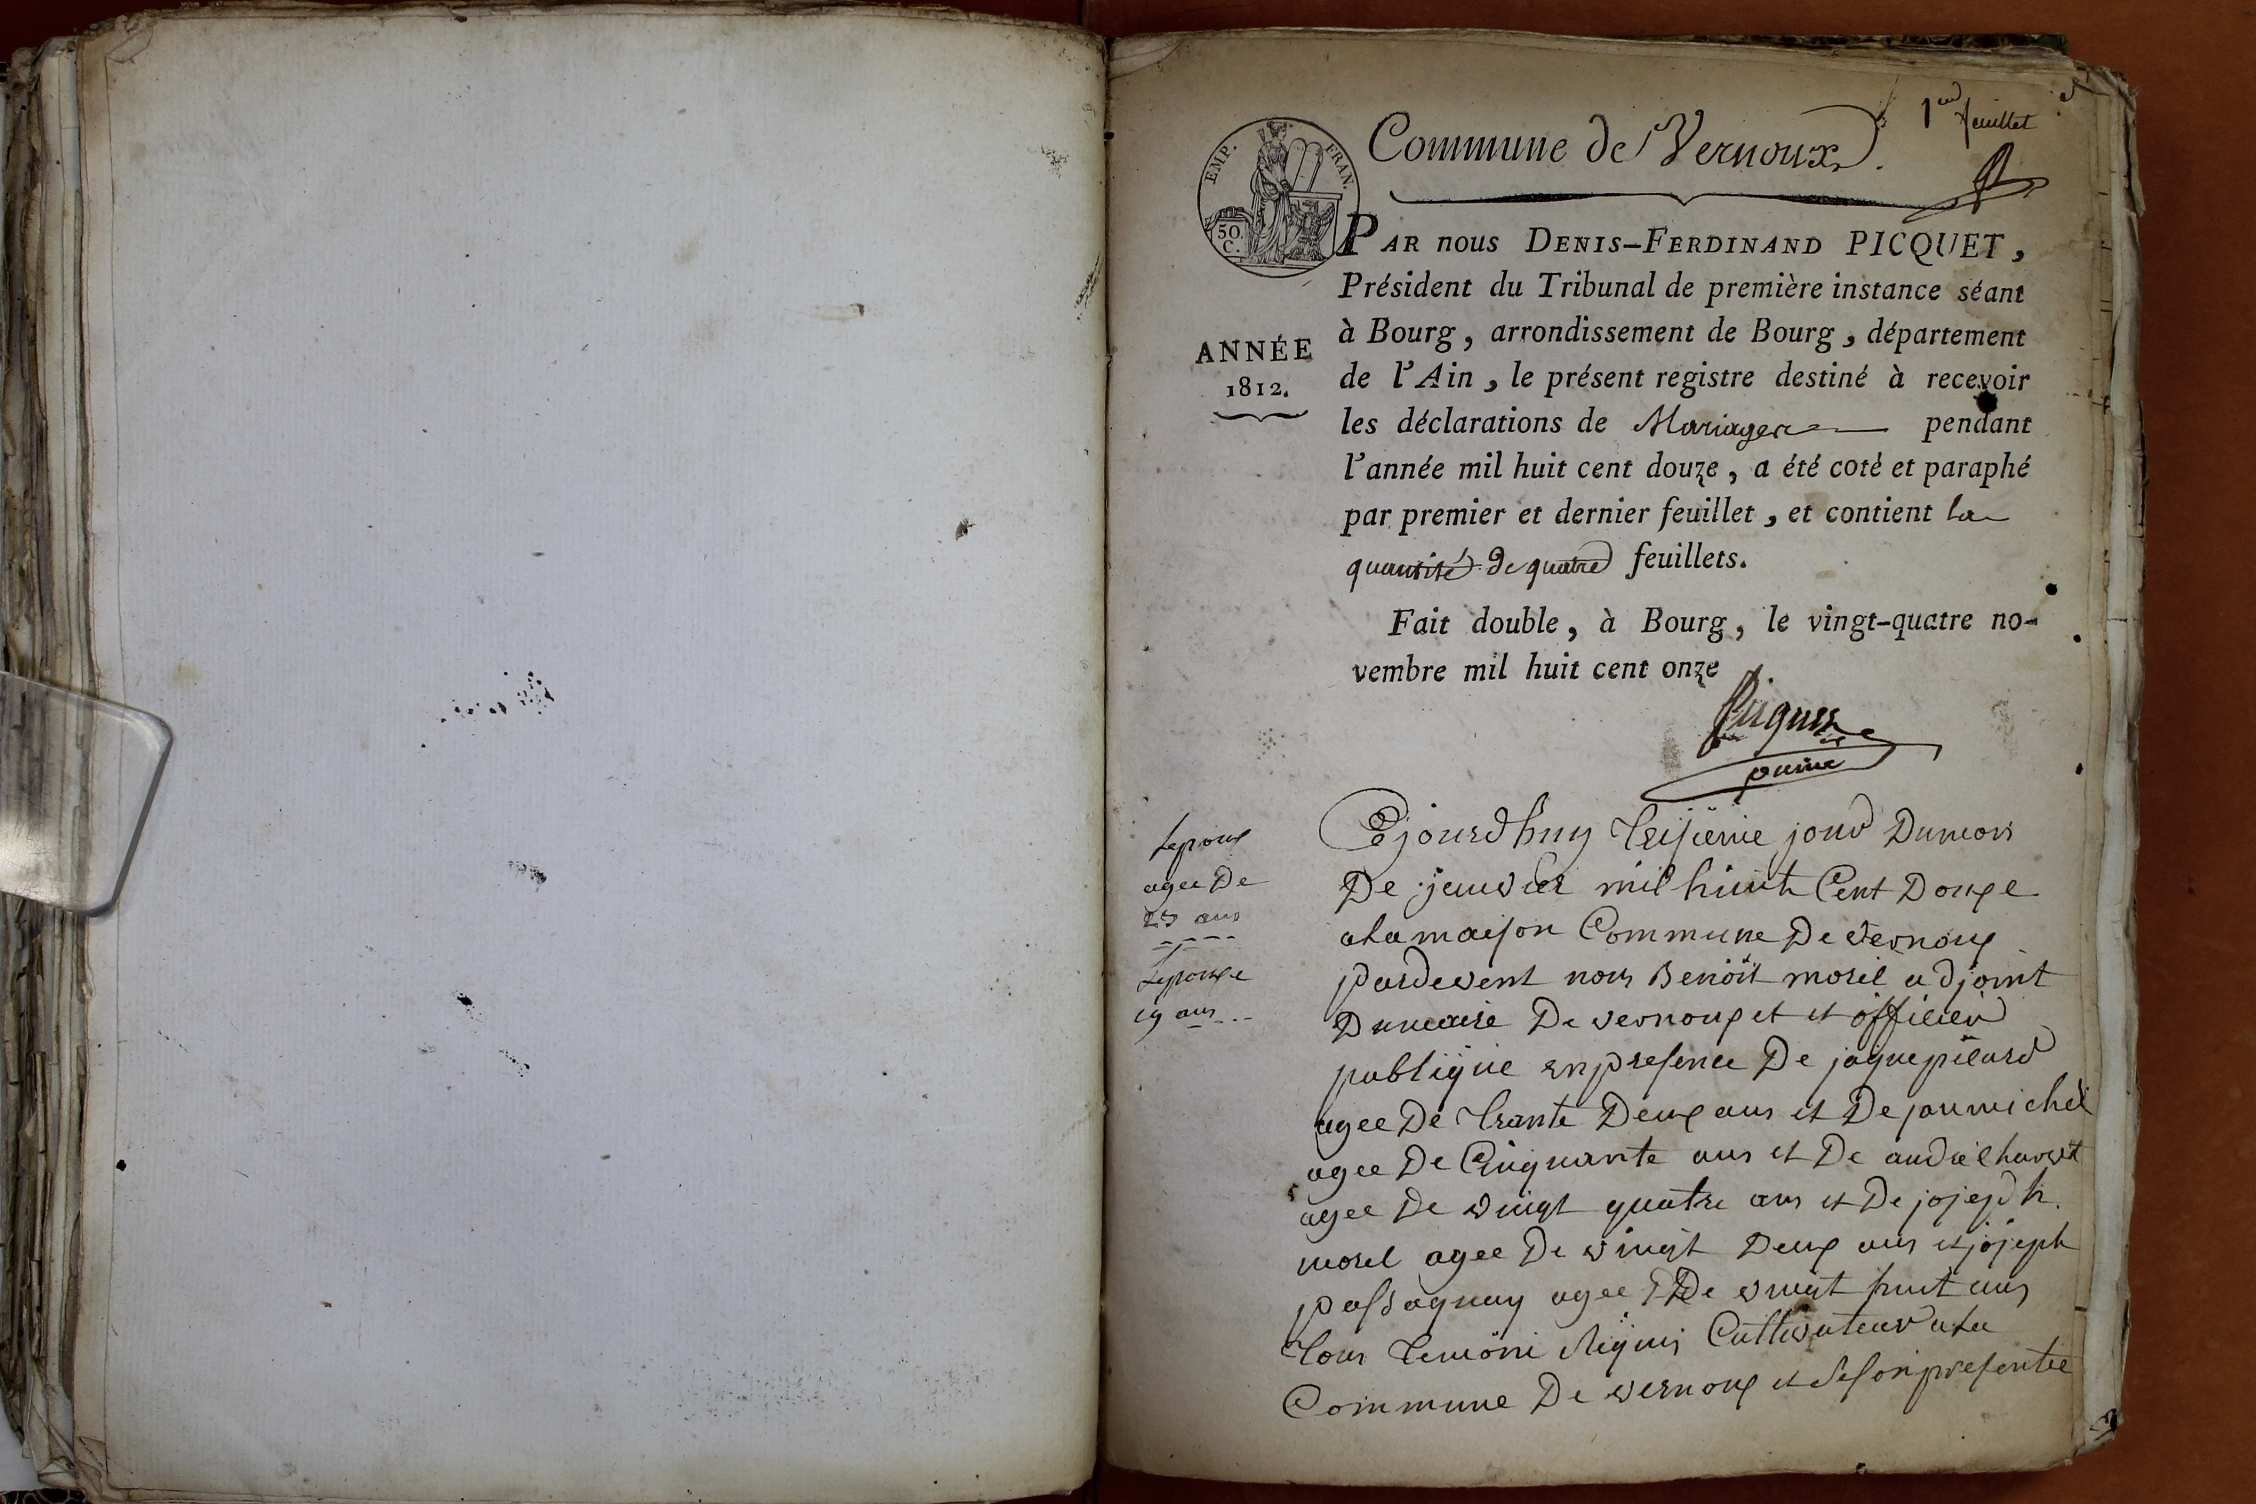 1er feuillet
Commune de Vernoux
EMP. FRAN.
50.
C.
PAR nous DENIS-FERDINAND PICQUET,
Président du Tribunal de première instance séant
à Bourg, arrondissement de Bourg, département
de l'Ain, le présent registre destiné à recevoir
les déclarations de Mariages pendant
l'année mil huit cent douze, a été coté et paraphé
par premier et dernier feuillet, et contient la
quantité de quatre feuillets.
Fait double, à Bourg, le vingt-quatre no-
vembre mil huit cent onze
ANNÉE
1812.
Picquet
Lepoux
agee De
23 ans
Lepouxe
19 ans
Cejourdhuy Treisieme jour Dumois
De janvier mil huit Cent Douxe
ala maison Commune De vernoux
pardevent nous Benöit morel adjoint
Dumaire De vernoux et et officier
publique enpresence De jaque
agee De trante Deux ans et De jan michel
agee De Cinquante ans et De andre
agee De vingt quatre ans et De josejph
morel agee De vingt Deux ans et jojeph
agee De vingt huit ans
Tous Cultivateur ala
Commune De vernoux et Sesonpresentee